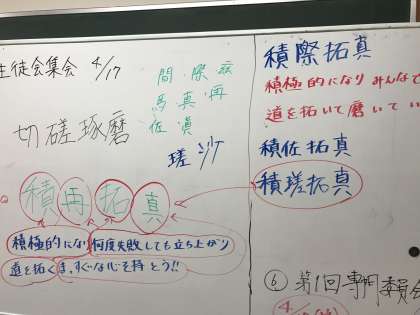 生徒会集会 4/17
切磋琢磨
間・際・
馬・真・再
佐・眞
瑳 沙
積再拓真
積極的になり 何度失敗しても立ち上がり
道を拓く まっすぐな心を持とう!!
積際拓真
積極的になり みんなで
道を拓いて磨いてい
積佐拓真
積瑳拓真
⑥ 第1回専門委員会
4/